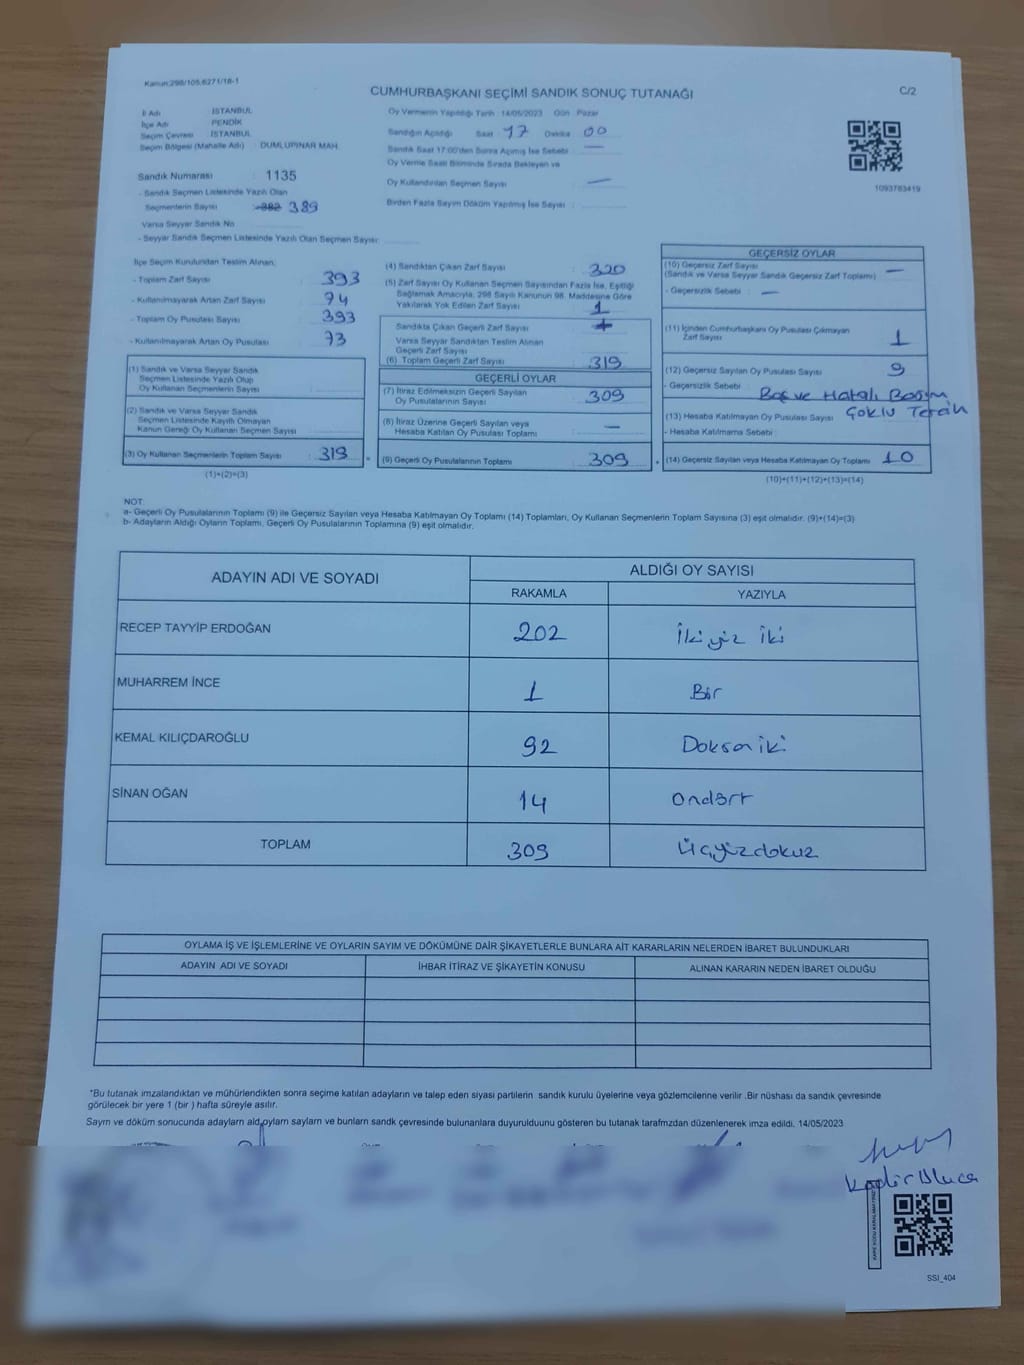 Kanun:298/105,6271/18-1
CUMHURBAŞKANI SEÇİMİ SANDIK SONUÇ TUTANAĞI
C/2
İl Adı İSTANBUL
İlçe Adı PENDİK
Seçim Çevresi : İSTANBUL
Seçim Bölgesi (Mahalle Adı) : DUMLUPINAR MAH.
Sandık Numarası : 1135
- Sandık Seçmen Listesinde Yazılı Olan
Seçmenlerin Sayısı : 382 389
Varsa Seyyar Sandık No
- Seyyar Sandık Seçmen Listesinde Yazılı Olan Seçmen Sayısı:
Oy Vermenin Yapıldığı Tarih : 14/05/2023 Gün Pazar
Sandığın Açıldığı Saat 17 Dakika 00
Sandık Saat 17:00'den Sonra Açılmış İse Sebebi : —
Oy Verme Saati Bitiminde Sırada Bekleyen ve
Oy Kullandırılan Seçmen Sayısı : —
Birden Fazla Sayım Döküm Yapılmış İse Sayısı :
1093783419
İlçe Seçim Kurulundan Teslim Alınan;
- Toplam Zarf Sayısı : 393
- Kullanılmayarak Artan Zarf Sayısı : 74
- Toplam Oy Pusulası Sayısı : 393
- Kullanılmayarak Artan Oy Pusulası : 73
(1) Sandık ve Varsa Seyyar Sandık
Seçmen Listesinde Yazılı Olup
Oy Kullanan Seçmenlerin Sayısı
(2) Sandık ve Varsa Seyyar Sandık
Seçmen Listesinde Kayıtlı Olmayan
Kanun Gereği Oy Kullanan Seçmen Sayısı
(3) Oy Kullanan Seçmenlerin Toplam Sayısı : 319
(1)+(2)=(3)
(4) Sandıktan Çıkan Zarf Sayısı : 320
(5) Zarf Sayısı Oy Kullanan Seçmen Sayısından Fazla İse, Eşitliği
Sağlamak Amacıyla, 298 Sayılı Kanunun 98. Maddesine Göre
Yakılarak Yok Edilen Zarf Sayısı : 1
Sandıkta Çıkan Geçerli Zarf Sayısı :
Varsa Seyyar Sandıktan Teslim Alınan
Geçerli Zarf Sayısı
(6) Toplam Geçerli Zarf Sayısı : 319
GEÇERLİ OYLAR
(7) İtiraz Edilmeksizin Geçerli Sayılan
Oy Pusulalarının Sayısı : 309
(8) İtiraz Üzerine Geçerli Sayılan veya
Hesaba Katılan Oy Pusulası Toplamı : —
(9) Geçerli Oy Pusulalarının Toplamı : 309
GEÇERSİZ OYLAR
(10) Geçersiz Zarf Sayısı
(Sandık ve Varsa Seyyar Sandık Geçersiz Zarf Toplamı) : —
- Geçersizlik Sebebi : —
(11) İçinden Cumhurbaşkanı Oy Pusulası Çıkmayan
Zarf Sayısı 1
(12) Geçersiz Sayılan Oy Pusulası Sayısı : 9
- Geçersizlik Sebebi : Boş ve Hatalı Basım
Çoklu Tercih
(13) Hesaba Katılmayan Oy Pusulası Sayısı :
- Hesaba Katılmama Sebebi :
(14) Geçersiz Sayılan veya Hesaba Katılmayan Oy Toplamı : 10
(10)+(11)+(12)+(13)=(14)
NOT:
a- Geçerli Oy Pusulalarının Toplamı (9) ile Geçersiz Sayılan veya Hesaba Katılmayan Oy Toplamı (14) Toplamları, Oy Kullanan Seçmenlerin Toplam Sayısına (3) eşit olmalıdır. (9)+(14)=(3)
b- Adayların Aldığı Oyların Toplamı, Geçerli Oy Pusulalarının Toplamına (9) eşit olmalıdır.
ADAYIN ADI VE SOYADI
ALDIĞI OY SAYISI
RAKAMLA YAZIYLA
RECEP TAYYİP ERDOĞAN 202 İkiyüz iki
MUHARREM İNCE 1 Bir
KEMAL KILIÇDAROĞLU 92 Doksaniki
SİNAN OĞAN 14 Ondört
TOPLAM 309 Üçyüzdokuz
OYLAMA İŞ VE İŞLEMLERİNE VE OYLARIN SAYIM VE DÖKÜMÜNE DAİR ŞİKAYETLERLE BUNLARA AİT KARARLARIN NELERDEN İBARET BULUNDUKLARI
ADAYIN ADI VE SOYADI İHBAR İTİRAZ VE ŞİKAYETİN KONUSU ALINAN KARARIN NEDEN İBARET OLDUĞU
"Bu tutanak imzalandıktan ve mühürlendikten sonra seçime katılan adayların ve talep eden siyasi partilerin sandık kurulu üyelerine veya gözlemcilerine verilir .Bir nüshası da sandık çevresinde
görülecek bir yere 1 (bir ) hafta süreyle asılır.
Sayım ve döküm sonucunda adayların ald oylarn saylarn ve bunlarn sandk çevresinde bulunanlara duyurulduunu gösteren bu tutanak tarafmzdan düzenlenerek imza edildi. 14/05/2023
Kadir Uluca
SSI_404